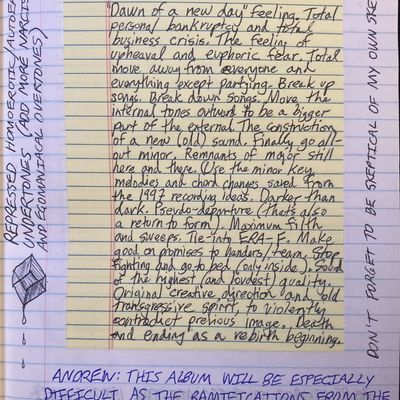 "Dawn of a new day" feeling. Total
personal bankruptcy and total
business crisis. The feeling of
upheaval and euphoric fear. Total
move away from everyone and
everything except partying. Break up
songs. Break down songs. Move the
internal tones outward to be a bigger
part of the external. The construction
of a new (old) sound. Finally go all-
out minor. Remnants of major still
here and there. (Use the minor key
melodies and chord changes saved from
the 1997 recording ideas. Darker than
dark. Pseudo-departure (thats also
a return to form). Maximum filth
and sweeps. Tie-into ERA-F. Make
good on promises to handlers/team. Stop
fighting and go to bed (only inside). Sound
of the highest (and loudest) quality.
Original creative direction and old
transgressive spirit, to violently
contradict previous image. Depth
and ending as a rebirth beginning.
REPRESSED HOMOEROTIC/AUTOE
UNDERTONES (ADD MORE NARCIS
AND EROMANIACAL OVERTONES)
DON'T FORGET TO BE SKEPTICAL OF MY OWN SKE
ANDREW: THIS ALBUM WILL BE ESPECIALLY
DIFFICULT AS THE RAMIFICATIONS FROM THE